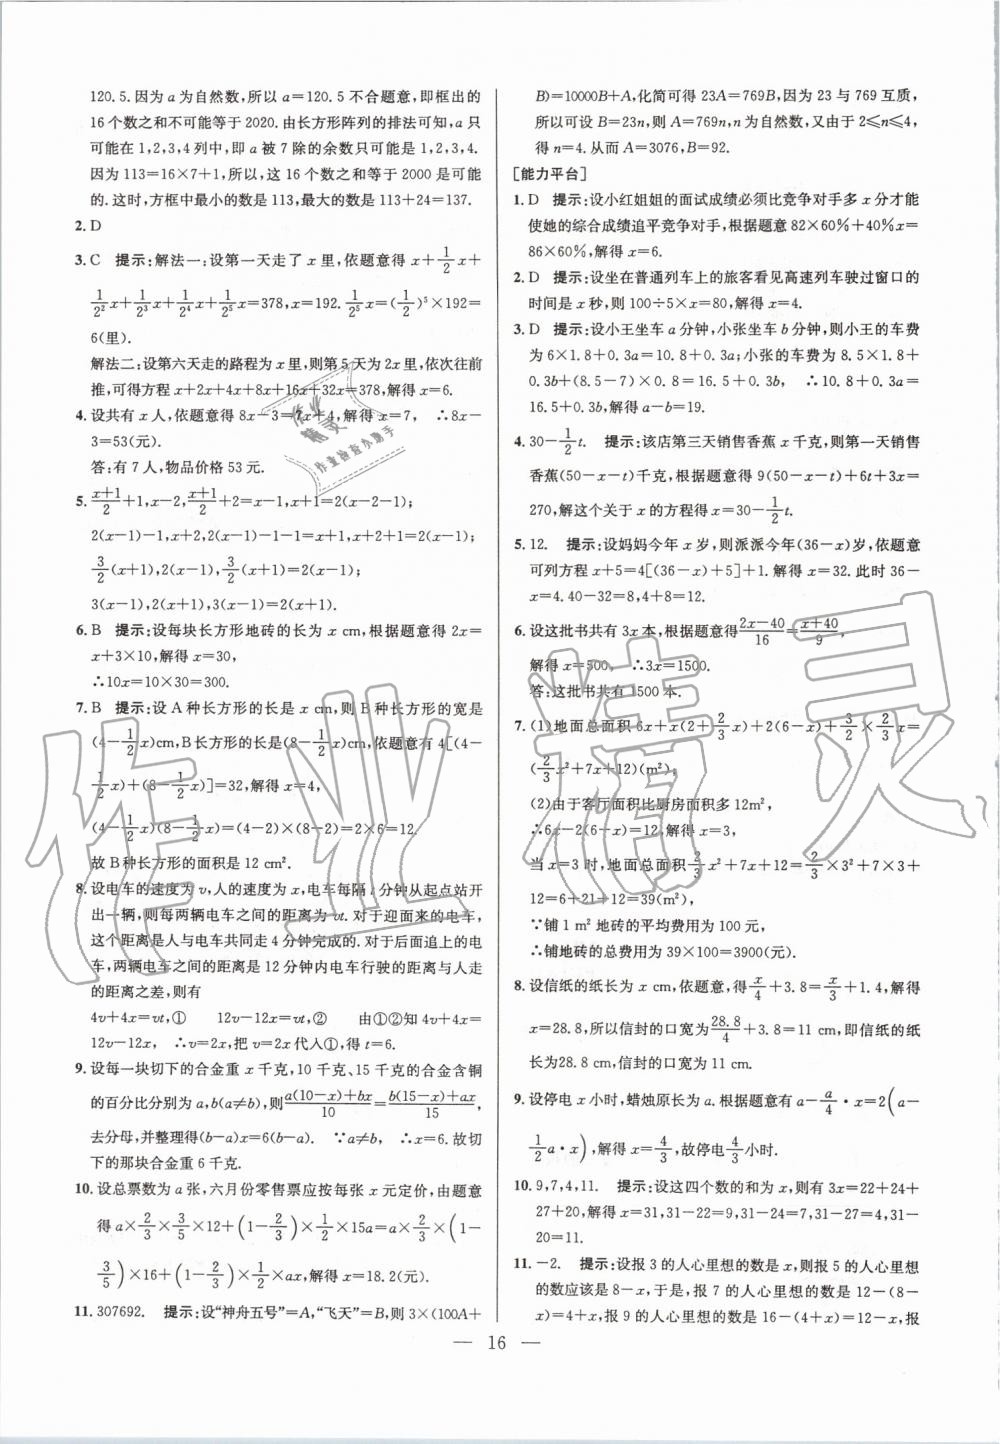 120.5.因为a为自然数,所以a=120.5不合题意,即框出的
16个数之和不可能等于2020.由长方形阵列的排法可知,a只
可能在1,2,3,4列中,即a被7除的余数只可能是1,2,3,4.
因为113=16×7+1,所以,这16个数之和等于2000是可能
的.这时,方框中最小的数是113,最大的数是113+24=137.
2. D
3. C 提示:解法一:设第一天走了x里,依题意得x+\frac{1}{2}x+
\frac{1}{2²}x+\frac{1}{2³}x+\frac{1}{2⁴}x+\frac{1}{2⁵}x=378,x=192.\frac{1}{2⁵}x=(\frac{1}{2})⁵×192=
6(里).
解法二:设第六天走的路程为x里,则第5天为2x里,依次往前
推,可得方程x+2x+4x+8x+16x+32x=378,解得x=6.
4. 设共有x人,依题意得8x-3=7x+4,解得x=7, ∴8x-
3=53(元).
答:有7人,物品价格53元.
5. \frac{x+1}{2}+1,x-2,\frac{x+1}{2}+2=x-1,x-1=2(x-2);
2(x-1)-1,x+2,2(x-1)-1-1=x+1,x+2+1=2(x-1);
\frac{3}{2}(x-1),2(x+1),\frac{3}{2}(x-1)=x+1,x-1=2(x+1);
3(x-1),2(x+1),3(x-1)=2(x+1).
6. B 提示:设每块长方形地砖的长为x cm,根据题意得2x=
x+3×10,解得x=30,
∴10x=10×30=300.
7. B 提示:设A种长方形的长是x cm,则B种长方形的宽是
(4-\frac{1}{2}x)cm,B长方形的长是(8-\frac{1}{2}x)cm,依题意有4[(4-
\frac{1}{2}x)+(8-\frac{1}{2}x)]=32,解得x=4,
(4-\frac{1}{2}x)(8-\frac{1}{2}x)=(4-2)×(8-2)=2×6=12.
故B种长方形的面积是12 cm².
8. 设电车的速度为v,人的速度为x,电车每隔t分钟从起点站开
出一辆,则每两辆电车之间的距离为vt.对于迎面来的电车,
这个距离是人与电车共同走4分钟完成的.对于后面追上的电
车,两辆电车之间的距离是12分钟内电车行驶的距离与人走
的距离之差,则有
4v+4x=vt,① 12v-12x=vt,② 由①②知4v+4x=
12v-12x, ∴v=2x,把v=2x代入①,得t=6.
9. 设每一块切下的合金重x千克,10千克、15千克的合金含铜
的百分比分别为a,b(a≠b),则\frac{a(10-x)+bx}{10}=\frac{b(15-x)+ax}{15},
去分母,并整理得(b-a)x=6(b-a). ∵a≠b, ∴x=6.故切
下的那块合金重6千克.
10. 设总票数为a张,六月份零售票应按每张x元定价,由题意
得a×\frac{2}{3}×\frac{3}{5}×12+(1-\frac{2}{3})×\frac{1}{2}×15a=a×\frac{2}{3}×(1-
\frac{3}{5})×16+(1-\frac{2}{3})×\frac{1}{2}×ax,解得x=18.2(元).
11. 307692. 提示:设“神舟五号”=A,“飞天”=B,则3×(100A+
B)=10000B+A,化简可得23A=769B,因为23与769互质,
所以可设B=23n,则A=769n,n为自然数,又由于2≤n≤4,
得n=4.从而A=3076,B=92.
[能力平台]
1. D 提示:设小红姐姐的面试成绩必须比竞争对手多x分才能
使她的综合成绩追平竞争对手,根据题意82×60%+40%x=
86×60%,解得x=6.
2. D 提示:设坐在普通列车上的旅客看见高速列车驶过窗口的
时间是x秒,则100÷5×x=80,解得x=4.
3. D 提示:设小王坐车a分钟,小张坐车b分钟,则小王的车费
为6×1.8+0.3a=10.8+0.3a;小张的车费为8.5×1.8+
0.3b+(8.5-7)×0.8=16.5+0.3b, ∴10.8+0.3a=
16.5+0.3b,解得a-b=19.
4. 30-\frac{1}{2}t. 提示:该店第三天销售香蕉x千克,则第一天销售
香蕉(50-x-t)千克,根据题意得9(50-x-t)+6t+3x=
270,解这个关于x的方程得x=30-\frac{1}{2}t.
5. 12. 提示:设妈妈今年x岁,则派派今年(36-x)岁,依题意
可列方程x+5=4[(36-x)+5]+1.解得x=32.此时36-
x=4.40-32=8,4+8=12.
6. 设这批书共有3x本,根据题意得\frac{2x-40}{16}=\frac{x+40}{9},
解得x=500, ∴3x=1500.
答:这批书共有1500本.
7. (1)地面总面积6x+x(2+\frac{2}{3}x)+2(6-x)+\frac{3}{2}×\frac{2}{3}x=
(\frac{2}{3}x²+7x+12)(m²);
(2)由于客厅面积比厨房面积多12m²,
∴6x-2(6-x)=12,解得x=3,
当x=3时,地面总面积\frac{2}{3}x²+7x+12=\frac{2}{3}×3²+7×3+
12=6+21+12=39(m²).
∵铺1 m²地砖的平均费用为100元,
∴铺地砖的总费用为39×100=3900(元).
8. 设信纸的纸长为x cm,依题意,得\frac{x}{4}+3.8=\frac{x}{3}+1.4,解得
x=28.8,所以信封的口宽为\frac{28.8}{4}+3.8=11 cm,即信纸的纸
长为28.8 cm,信封的口宽为11 cm.
9. 设停电x小时,蜡烛原长为a.根据题意有a-\frac{a}{4}·x=2(a-
\frac{1}{2}a·x),解得x=\frac{4}{3},故停电\frac{4}{3}小时.
10. 9,7,4,11. 提示:设这四个数的和为x,则有3x=22+24+
27+20,解得x=31,31-22=9,31-24=7,31-27=4,31-
20=11.
11. -2. 提示:设报3的人心里想的数是x,则报5的人心里想
的数应该是8-x,于是,报7的人心里想的数是12-(8-
x)=4+x,报9的人心里想的数是16-(4+x)=12-x,报
— 16 —
作业精灵
作业
精灵
作业检查小助手